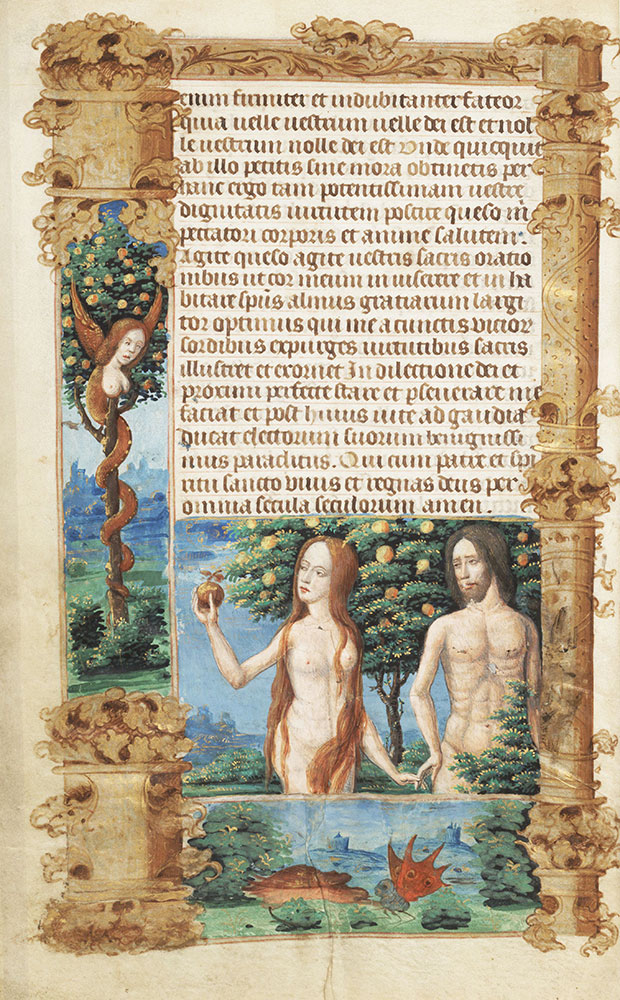 enim firmiter et indubitanter fateor
quia uelle uestrum uelle dei est et nol
le uestrum nolle dei est Unde quicquit
ab illo petitis sine mora obtinetis per
hanc ergo tam potentissimam uestre
dignitatis uirtutem poscite queso in
peccatori corporis et anime salutem.
Agite queso agite uestris sacris oratio
nibus ut cor meum inuiscere et inha
bitare sp̃us almus gratiarum largi
tor optimus qui me a cunctis vicior
sordibus expurges uirtutibus sacris
illustret et exornet In dilectione dei et
proximi perfecte stare et pseuerare me
faciat et post huius uite ad gaudia
ducat electorum suorum benignissi
mus paraclitus. Qui cum patre et spi
ritu sancto uiuis et regnas deus per
omnia secula seculorum amen.